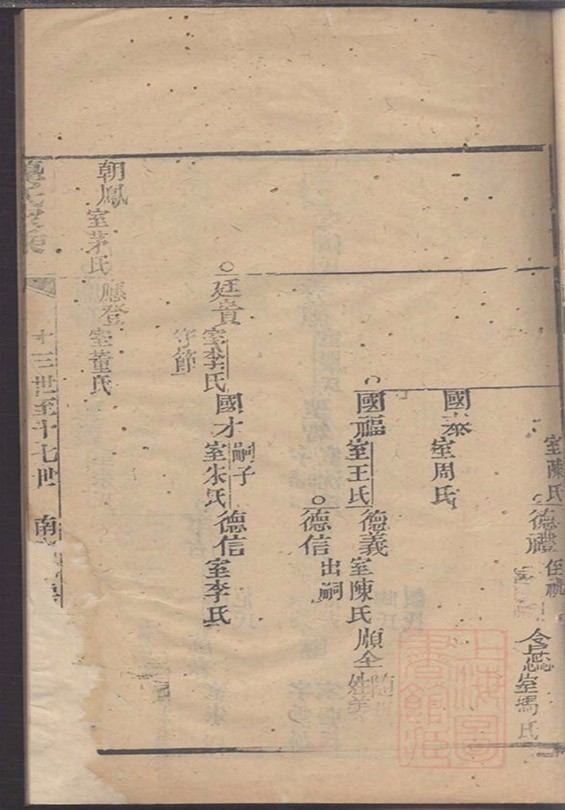 室陳氏
德禮
室馮氏
國泰
室周氏
國福
室王氏
德義
室陳氏
德信
出嗣
廷貴
室李氏
守節
國才
嗣子
室朱氏
德信
室李氏
朝鳳
室茅氏
應登
室董氏
十三世至十七世
南
上海圖書館藏